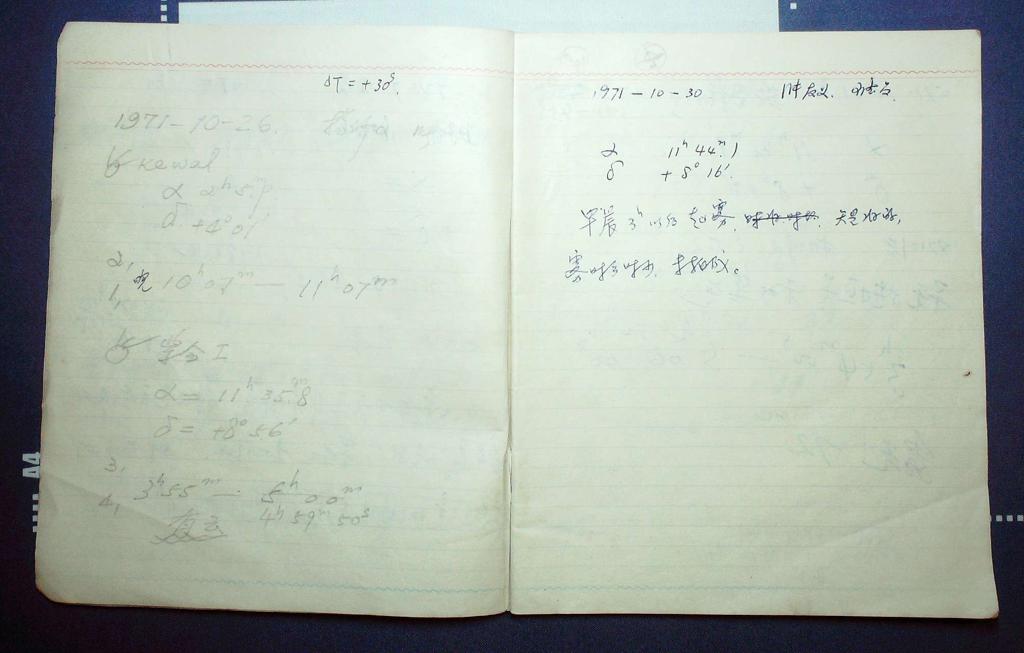 ΔT = +30ˢ.
1971-10-26.
kewal
α 2ʰ 5ᵐ.9
δ +4° 01′
2,
1, 晚 10ʰ07ᵐ — 11ʰ07ᵐ
紫金 I
α = 11ʰ 35ᵐ.8
δ = +8° 56′
3,
4, 3ʰ55ᵐ — 5ʰ00ᵐ
4ʰ59ᵐ50ˢ
1971-10-30
α 11ʰ 44ᵐ.1
δ +8° 16′.
早晨 3ʰ 以后 起雾, 天是好的,
雾时多时少, 未拍成。
A4